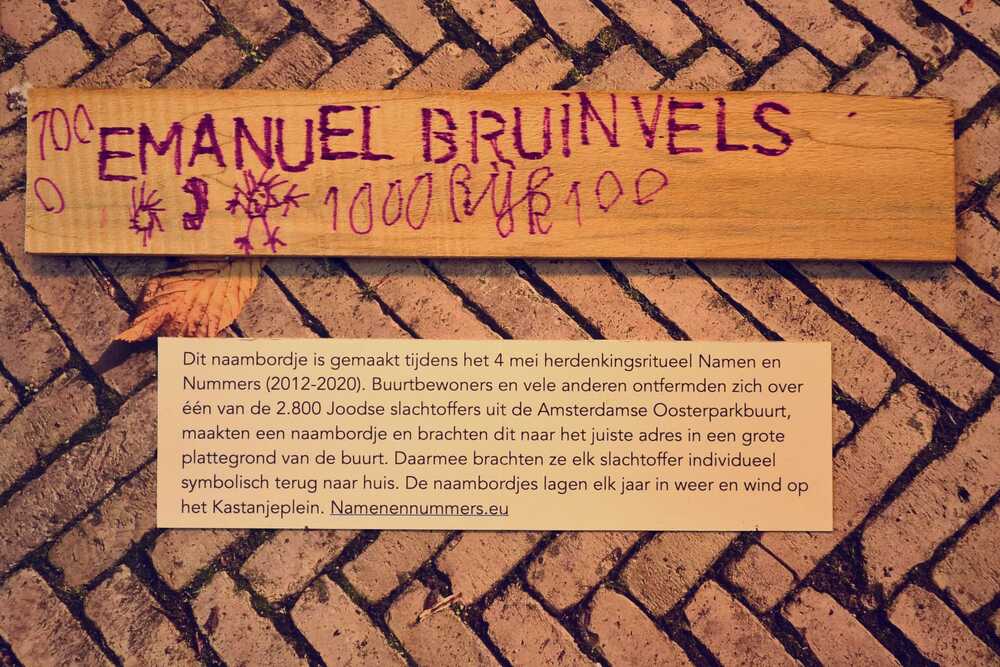 100 EMANUEL BRUiNVELS
0 1000 RijK 100
Dit naambordje is gemaakt tijdens het 4 mei herdenkingsritueel Namen en
Nummers (2012-2020). Buurtbewoners en vele anderen ontfermden zich over
één van de 2.800 Joodse slachtoffers uit de Amsterdamse Oosterparkbuurt,
maakten een naambordje en brachten dit naar het juiste adres in een grote
plattegrond van de buurt. Daarmee brachten ze elk slachtoffer individueel
symbolisch terug naar huis. De naambordjes lagen elk jaar in weer en wind op
het Kastanjeplein. Namenennummers.eu